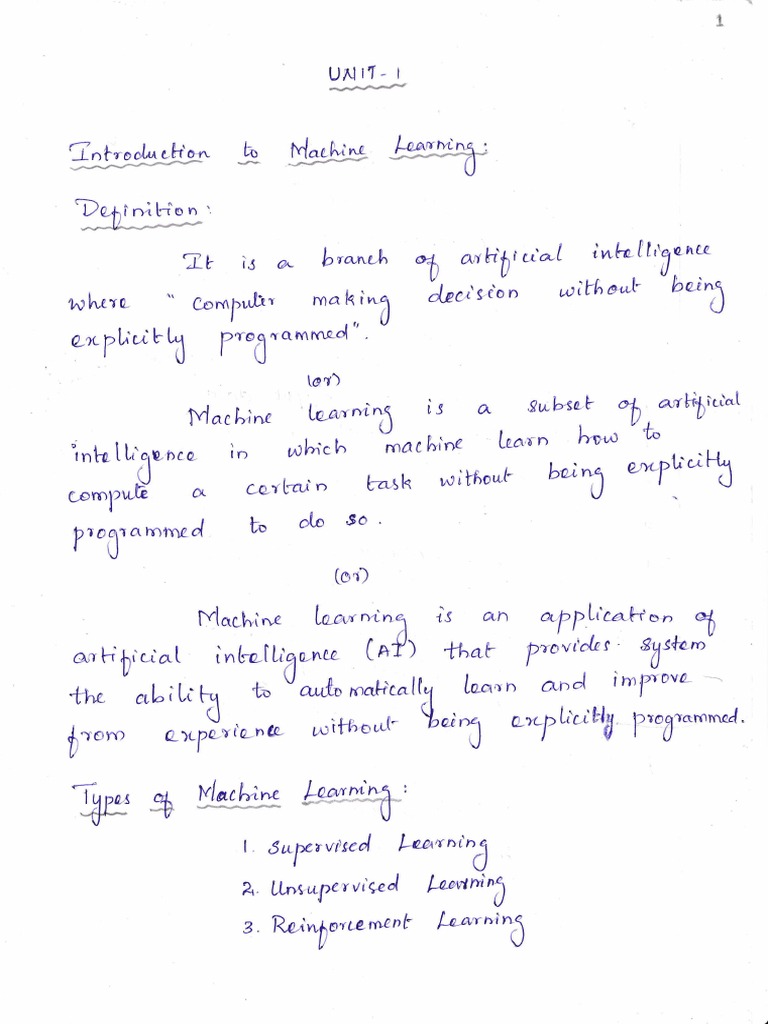 1
UNIT-1
Introduction to Machine Learning:
Definition:
It is a branch of artificial intelligence
where "computer making decision without being
explicitly programmed".
(or)
Machine learning is a subset of artificial
intelligence in which machine learn how to
compute a certain task without being explicitly
programmed to do so.
(or)
Machine learning is an application of
artificial intelligence (AI) that provides system
the ability to automatically learn and improve
from experience without being explicitly programmed.
Types of Machine Learning:
1. Supervised Learning
2. Unsupervised Learning
3. Reinforcement Learning